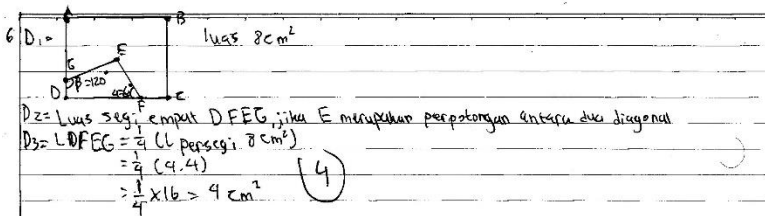 6 D1= luas 8cm²
A B
G E
D β=120 α=60
F C
D2= Luas segi empat DFEG, jika E merupakan perpotongan antara dua diagonal
D3= L DFEG = 1/4 (L persegi 8 cm²)
= 1/4 (4.4)
= 1/4 x 16 = 4 cm²
4